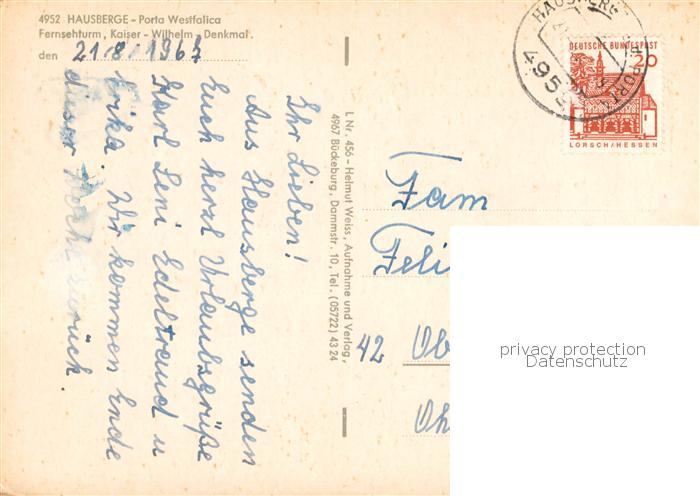 4952 HAUSBERGE - Porta Westfalica
Fernsehturm, Kaiser - Wilhelm - Denkmal.
den 21/8/1967
Ihr Lieben!
Aus Hausberge senden
Euch herzl Urlaubsgrüße
Karl Leni Edeltraud u
Erika. Wir kommen Ende
dieser Woche zurück.
L Nr. 456 - Helmut Weiss, Aufnahme und Verlag,
4967 Bückeburg, Dammstr. 10, Tel. (05722) 43 24
HAUSBERGE
495
DEUTSCHE BUNDESPOST
20
LORSCH/HESSEN
Fam
Feli
42 Ob
Oh
privacy protection
Datenschutz